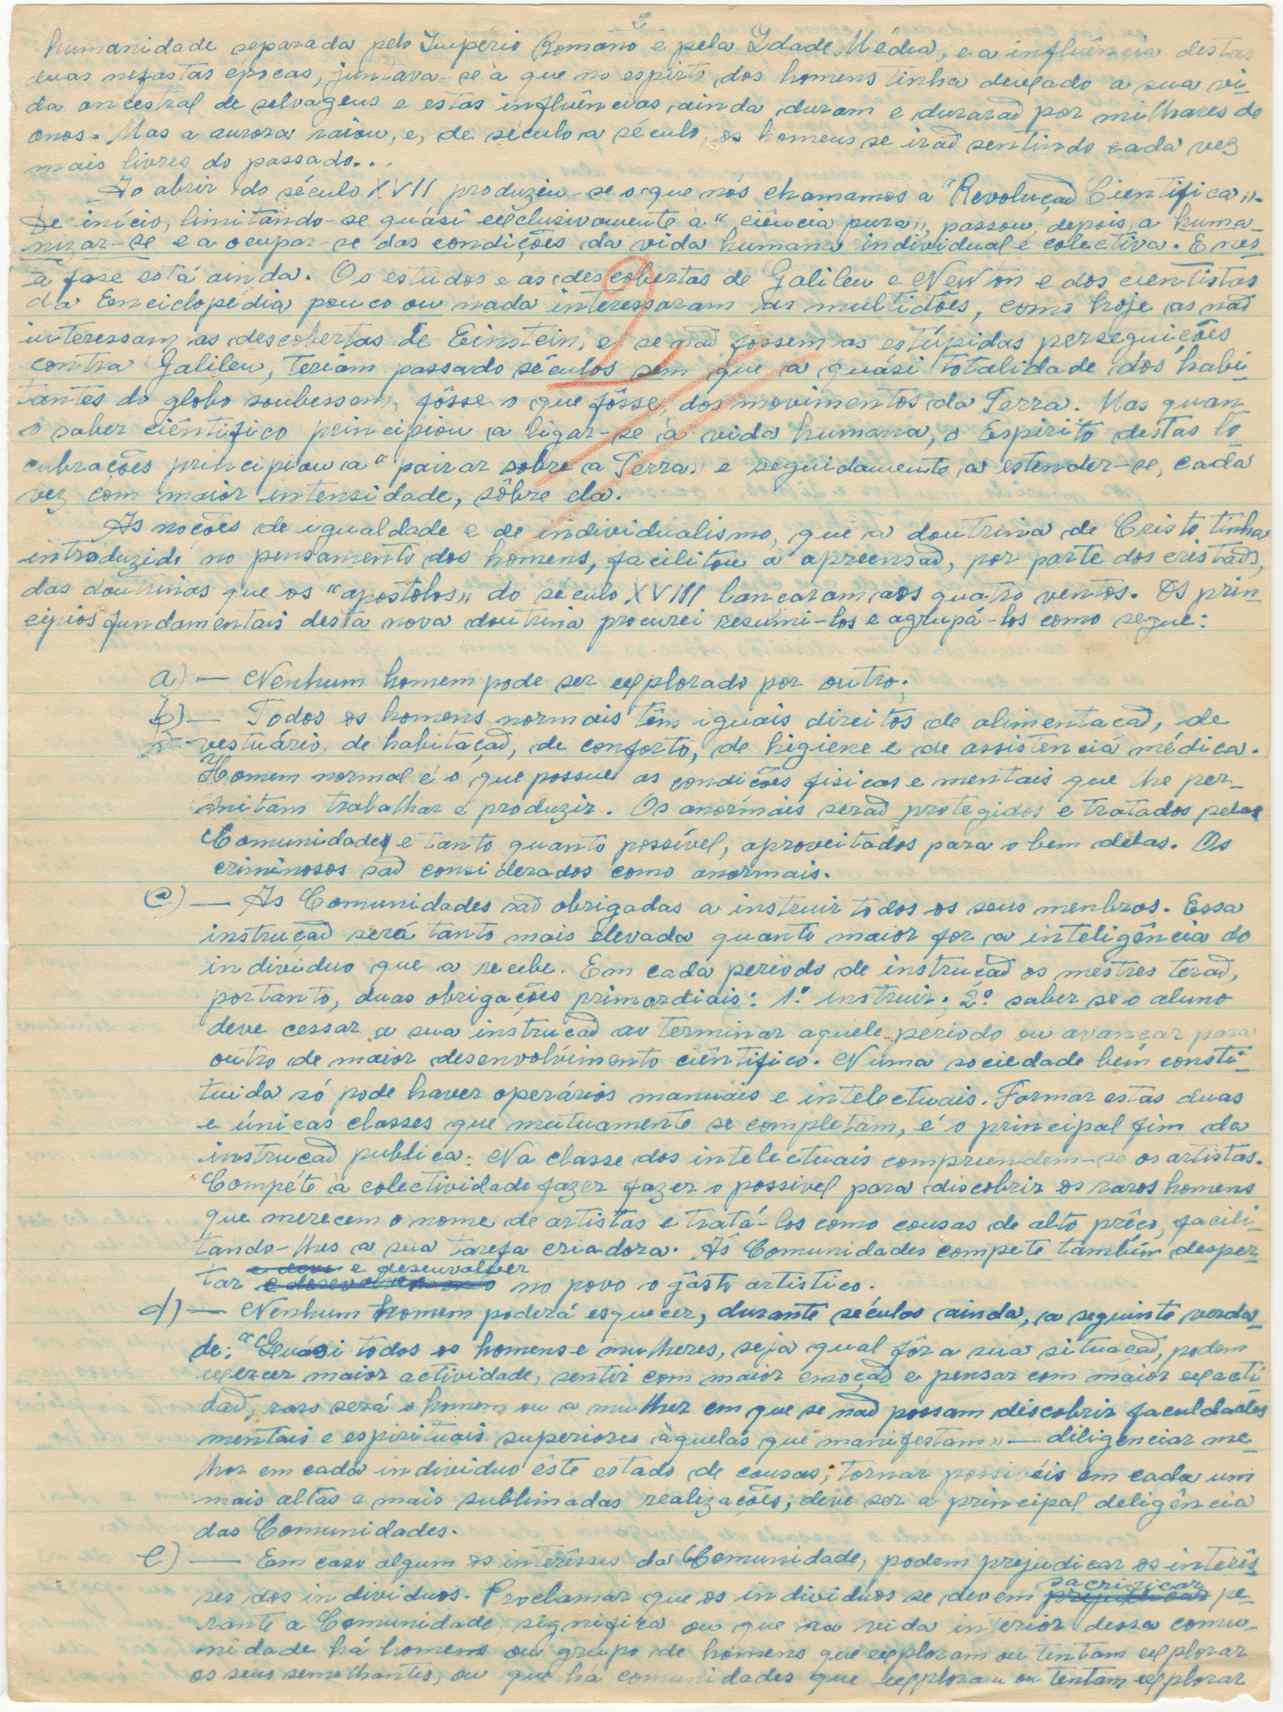 2
humanidade separada pelo Império Romano e pela Idade Média, e a influência destas
duas nefastas épocas, juntara-se à que no espirito dos homens tinha deixado a sua vi-
da ancestral de selvagens e estas influências ainda duram e durarão por milhares de
anos. Mas a aurora raiou, e, de século a século, os homens se irão sentindo cada vez
mais livres do passado...
Ao abrir do século XVII produziu-se o que nós chamamos a "Revolução Cientifica".
De inicio, limitando-se quási exclusivamente a "ciência pura", passou, depois, a huma-
nizar-se e a ocupar-se das condições da vida humana individual e colectiva. E nes-
ta fase está ainda. Os estudos e as descobertas de Galileu e Newton e dos cientistas
da Enciclopédia pouco ou nada interessaram as multidões, como hoje as não
interessam as descobertas de Einstein, e, se não fossem as estúpidas perseguições
contra Galileu, teriam passado séculos sem que a quási totalidade dos habi-
tantes do globo soubessem, fôsse o que fôsse, dos movimentos da Terra. Mas quan-
o saber ciêntifico principiou a ligar-se à vida humana, o Espirito destas lo
cubrações principiou a "pairar sobre a Terra" e seguidamente, a estender-se, cada
vez com maior intensidade, sôbre ela.
As noções de igualdade e de individualismo, que a doutrina de Cristo tinha
introduzido no pensamento dos homens, facilitou a apreensão, por parte dos cristãos,
das doutrinas que os "apostolos" do século XVIII lançaram aos quatro ventos. Os prin-
cipios fundamentais desta nova doutrina procurei resumi-los e agrupá-los como segue:
a) — Nenhum homem pode ser explorado por outro;
b) — Todos os homens normais têm iguais direitos de alimentação, de
vestuário, de habitação, de conforto, de higiene e de assistência médica.
Homem normal é o que possue as condições fisicas e mentais que lhe per-
mitam trabalhar e produzir. Os anormais serão protegidos e tratados pelas
Comunidades e tanto quanto possível, aproveitados para o bem delas. Os
criminosos são considerados como anormais.
c) — As Comunidades são obrigadas a instruir todos os seus menbros. Essa
instrução será tanto mais elevada quanto maior for a inteligência do
individuo que a recebe. Em cada periodo de instrução os mestres terão,
portanto, duas obrigações primordiais: 1.º instruir; 2.º saber se o aluno
deve cessar a sua instrução ao terminar aquele periodo ou avançar para
outro de maior desenvolvimento ciêntifico. Numa sociedade bem consti-
tuida só pode haver operários manuais e intelectuais. Formar estas duas
e únicas classes que mutuamente se completam, é o principal fim da
instrução publica. Na classe dos intelectuais compreendem-se os artistas.
Compéte à colectividade fazer fazer o possivel para discobrir os raros homens
que merecem o nome de artistas e tratá-los como cousas de alto prêço, facili-
tando-lhes a sua tarefa criadora. Ás Comunidades compete também desper-
tar e desenvolver no povo o gôsto artistico.
d) — Nenhum homem poderá esquecer, durante séculos ainda, a seguinte verda-
de: "Quási todos os homens e mulheres, seja qual fôr a sua situação, podem
exercer maior actividade, sentir com maior emoção e pensar com maior exacti-
dão; raro será o homem ou a mulher em que se não possam discobrir faculdades
mentais e espirituais superiores àquelas que manifestam" — diligenciar me-
lhor em cada individuo êste estado de cousas; tornar possiveis em cada um
mais altas e mais sublimadas realizações; deve ser a principal deligência
das Comunidades.
e) — Em caso algum os interêsses da Comunidade, podem prejudicar os interês-
ses dos individuos. Proclamar que os individuos se devem sacrificar pe-
rante a Comunidade significa ou que na vida interior dessa comu-
nidade há homens ou grupo de homens que exploram ou tentam explorar
os seus semelhantes, ou que há comunidades que exploram ou tentam explorar